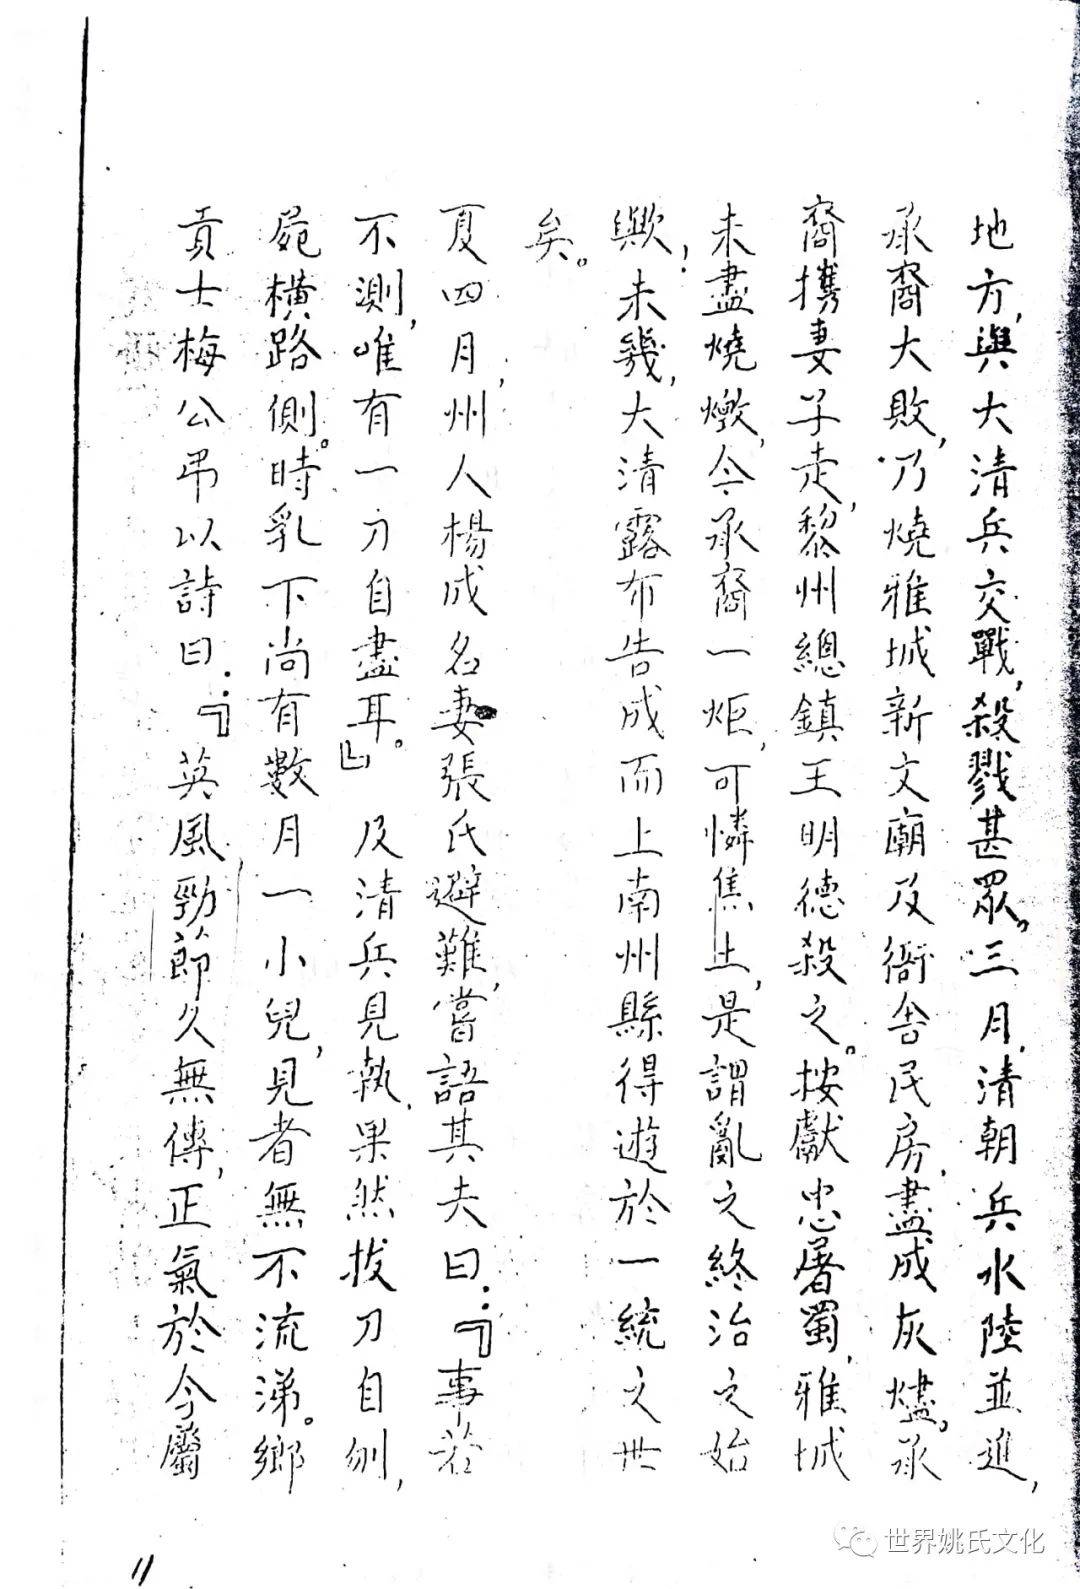 地方,與大清兵交戰,殺戮甚眾。三月,清朝兵水陸並進,
承裔大敗,乃燒雅城新文廟及衙舍民房,盡成灰燼。承
裔攜妻子走,黎州總鎮王明德殺之。按獻忠屠蜀,雅城
未盡燒燬,今承裔一炬,可憐焦土,是謂亂之終治之始
歟!未幾,大清露布告成而上南州縣得遊於一統之世
矣。
夏四月,州人楊成名妻張氏避難,嘗語其夫曰:『事若
不測,唯有一刀自盡耳。』及清兵見執,果然拔刀自刎,
屍橫路側。時乳下尚有數月一小兒,見者無不流涕。鄉
貢士梅公弔以詩曰:『英風勁節久無傳,正氣於今屬
11
世界姚氏文化